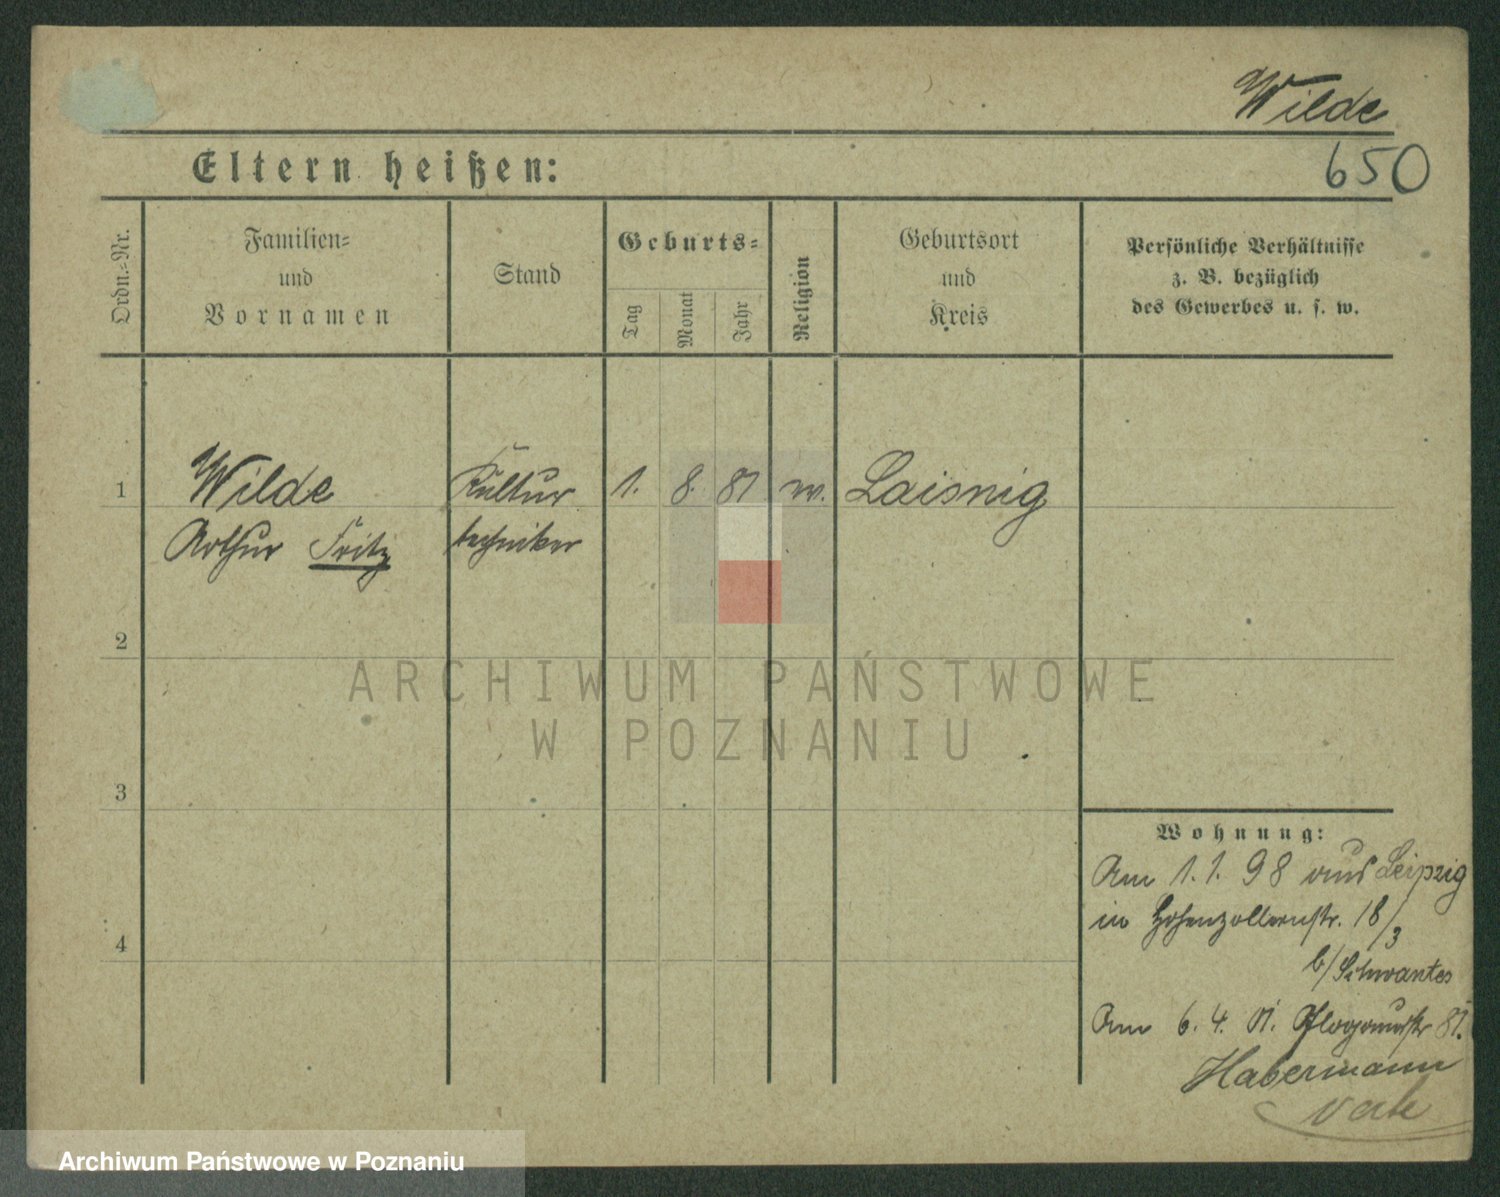 Wilde
650
Eltern heißen:
Ordn.-Nr.
Familien-
und
Vornamen
Stand
Geburts-
Tag
Monat
Jahr
Religion
Geburtsort
und
Kreis
Persönliche Verhältnisse
z. B. bezüglich
des Gewerbes u. s. w.
1
Wilde
Kultur
1. 8. 81
Laisnig
Arthur Fritz
techniker
2
ARCHIWUM PAŃSTWOWE
W POZNANIU
3
4
Wohnung:
Am 1.1.98 aus Leipzig
in Hohenzollernstr. 18/3
b/Schwantes
Am 6.4.01.
Habermann
Archiwum Państwowe w Poznaniu